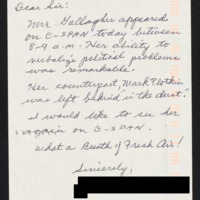 Dear Sir:
Mrs. Gallagher appeared
on C-SPAN today between
8-9 a.m. Her ability to
verbalize political problems
was remarkable.
Her counterpart, Mark Plotkin
was left behind "in the dust".
I would like to see her
again on C-SPAN.
What a Breath of Fresh Air!
Sincerely,